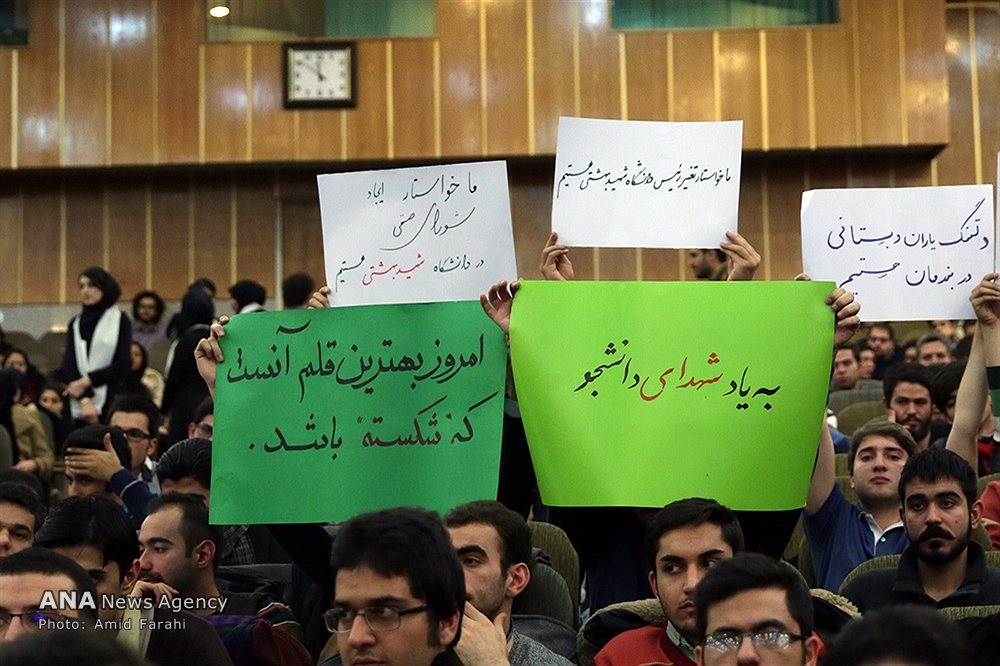 ما خواستار ایجاد
شورای صنفی
در دانشگاه شهید بهشتی هستیم
ما خواستار تغییر رئیس دانشگاه شهید بهشتی هستیم
دلتنگ یاران دبستانی
در بندمان هستیم
امروز بهترین قلم آنست
که "شکسته" باشد.
به یاد شهدای دانشجو
ANA News Agency
Photo: Amid Farahi